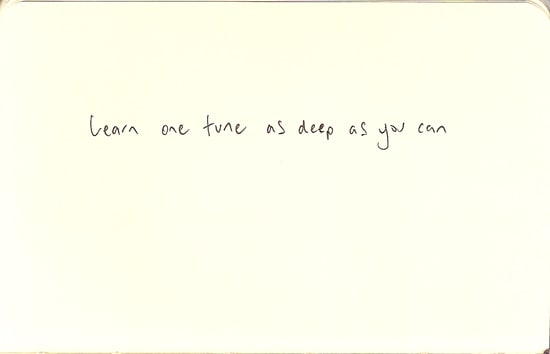 Learn one tune as deep as you can